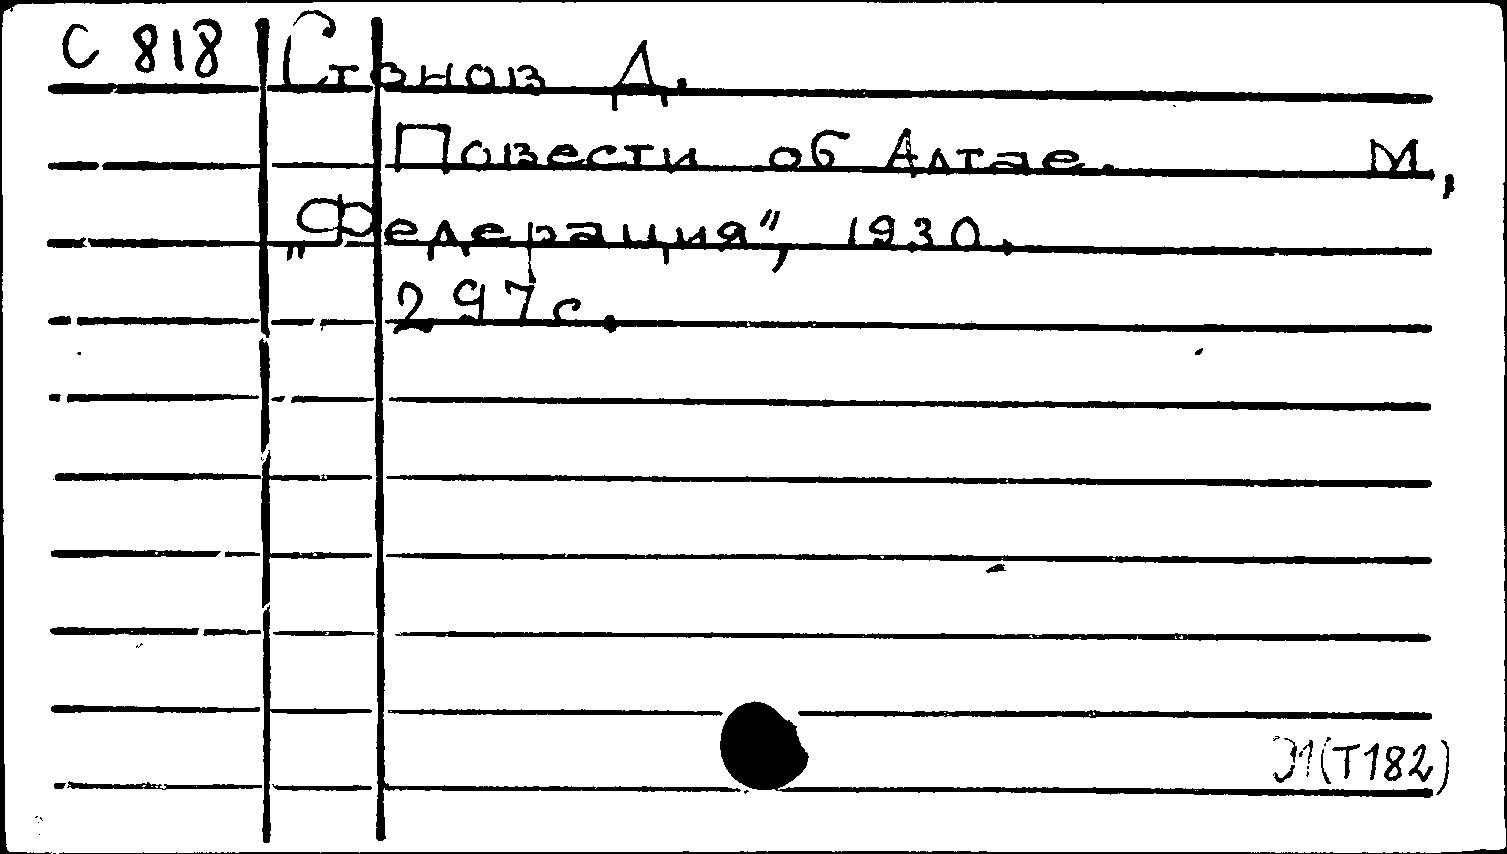 С 818 Стонов Д.
Повести об Алтае. М,
„Федерация“, 1930.
297 с.
Э1(Т182)